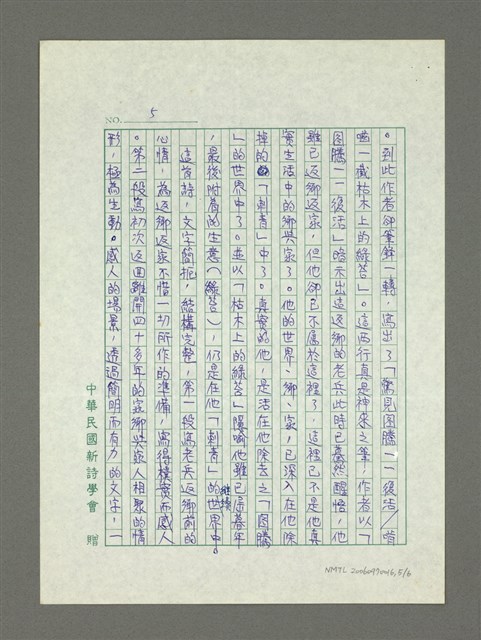 NO. 5
。到此作者卻筆鋒一轉，寫出了「驚見圖騰一一復活／啃
嚙一截枯木上的綠苔」。這兩行真是神來之筆，作者以「
圖騰一一復活」暗示出這返鄉的老兵此時已驀然醒悟，他
雖已返鄉返家，但他卻已不屬於這裡了，這裡已不是他真
實生活中的鄉與家了。他的世界、鄉、家，已深入在他除
掉的「刺青」中了。真實的他，是活在他除去之「圖騰
」的世界中了。並以「枯木上的綠苔」隱喻他雖已屆暮年
，最後附着的生意（綠苔），仍是在他「刺青」的世界中繼續。
這首詩，文字簡扼，結構完整，第一段寫老兵返鄉前的
心情，為返鄉返家不惜一切所作的準備，寫得樸實而感人
。第二段寫初次返回離開四十多年的家鄉與家人相聚的情
形，極為生動。感人的場景，透過簡明而有力的文字，一
中華民國新詩學會 贈
NMTL 20060970016, 5/6